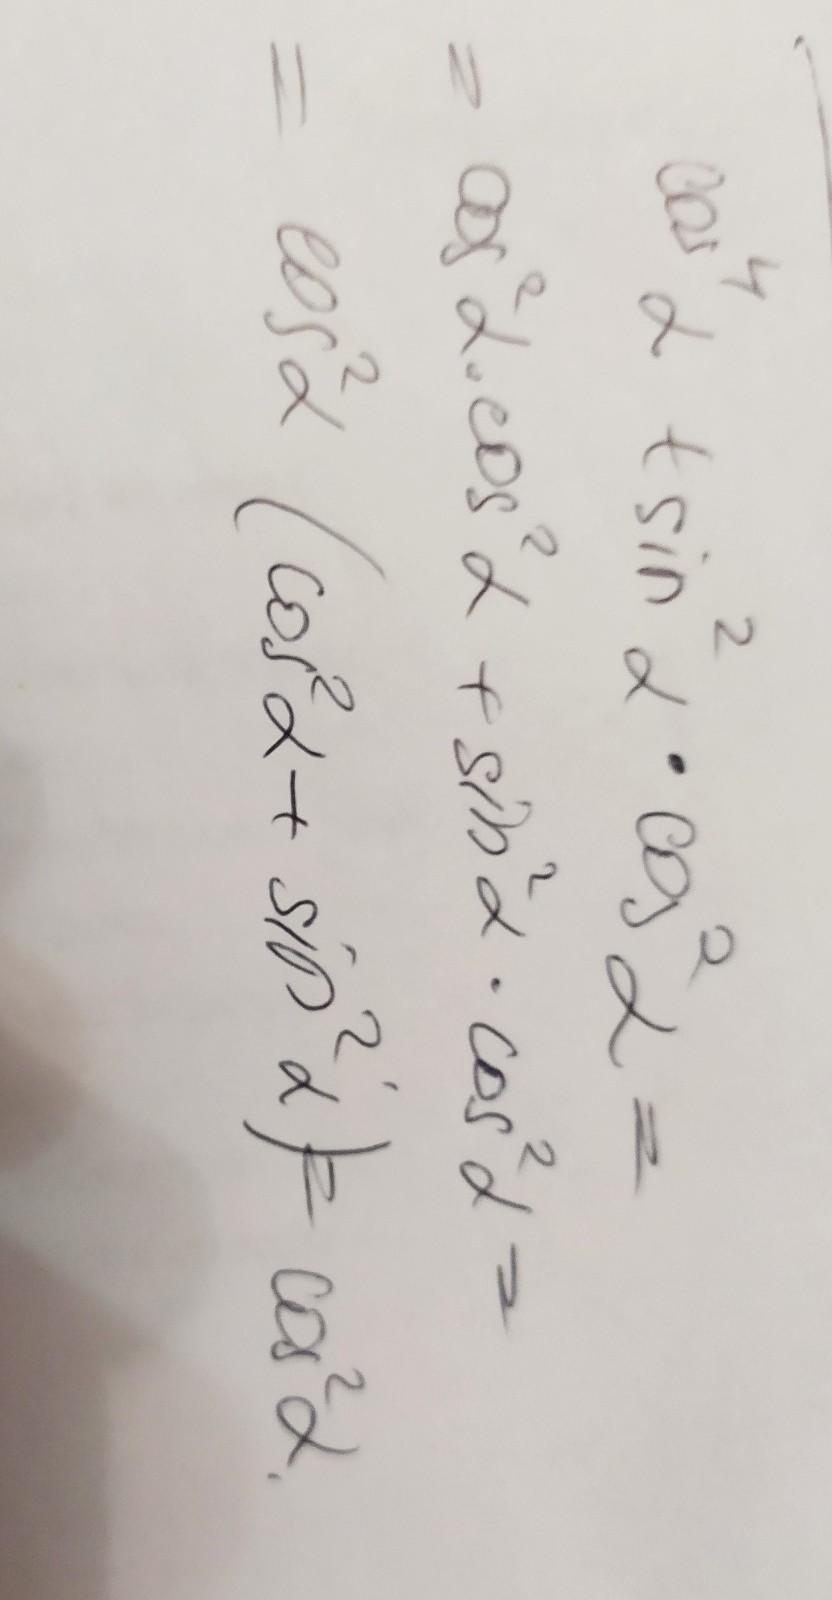 cos⁴α + sin²α · cos²α =
= cos²α · cos²α + sin²α · cos²α =
= cos²α (cos²α + sin²α) = cos²α.